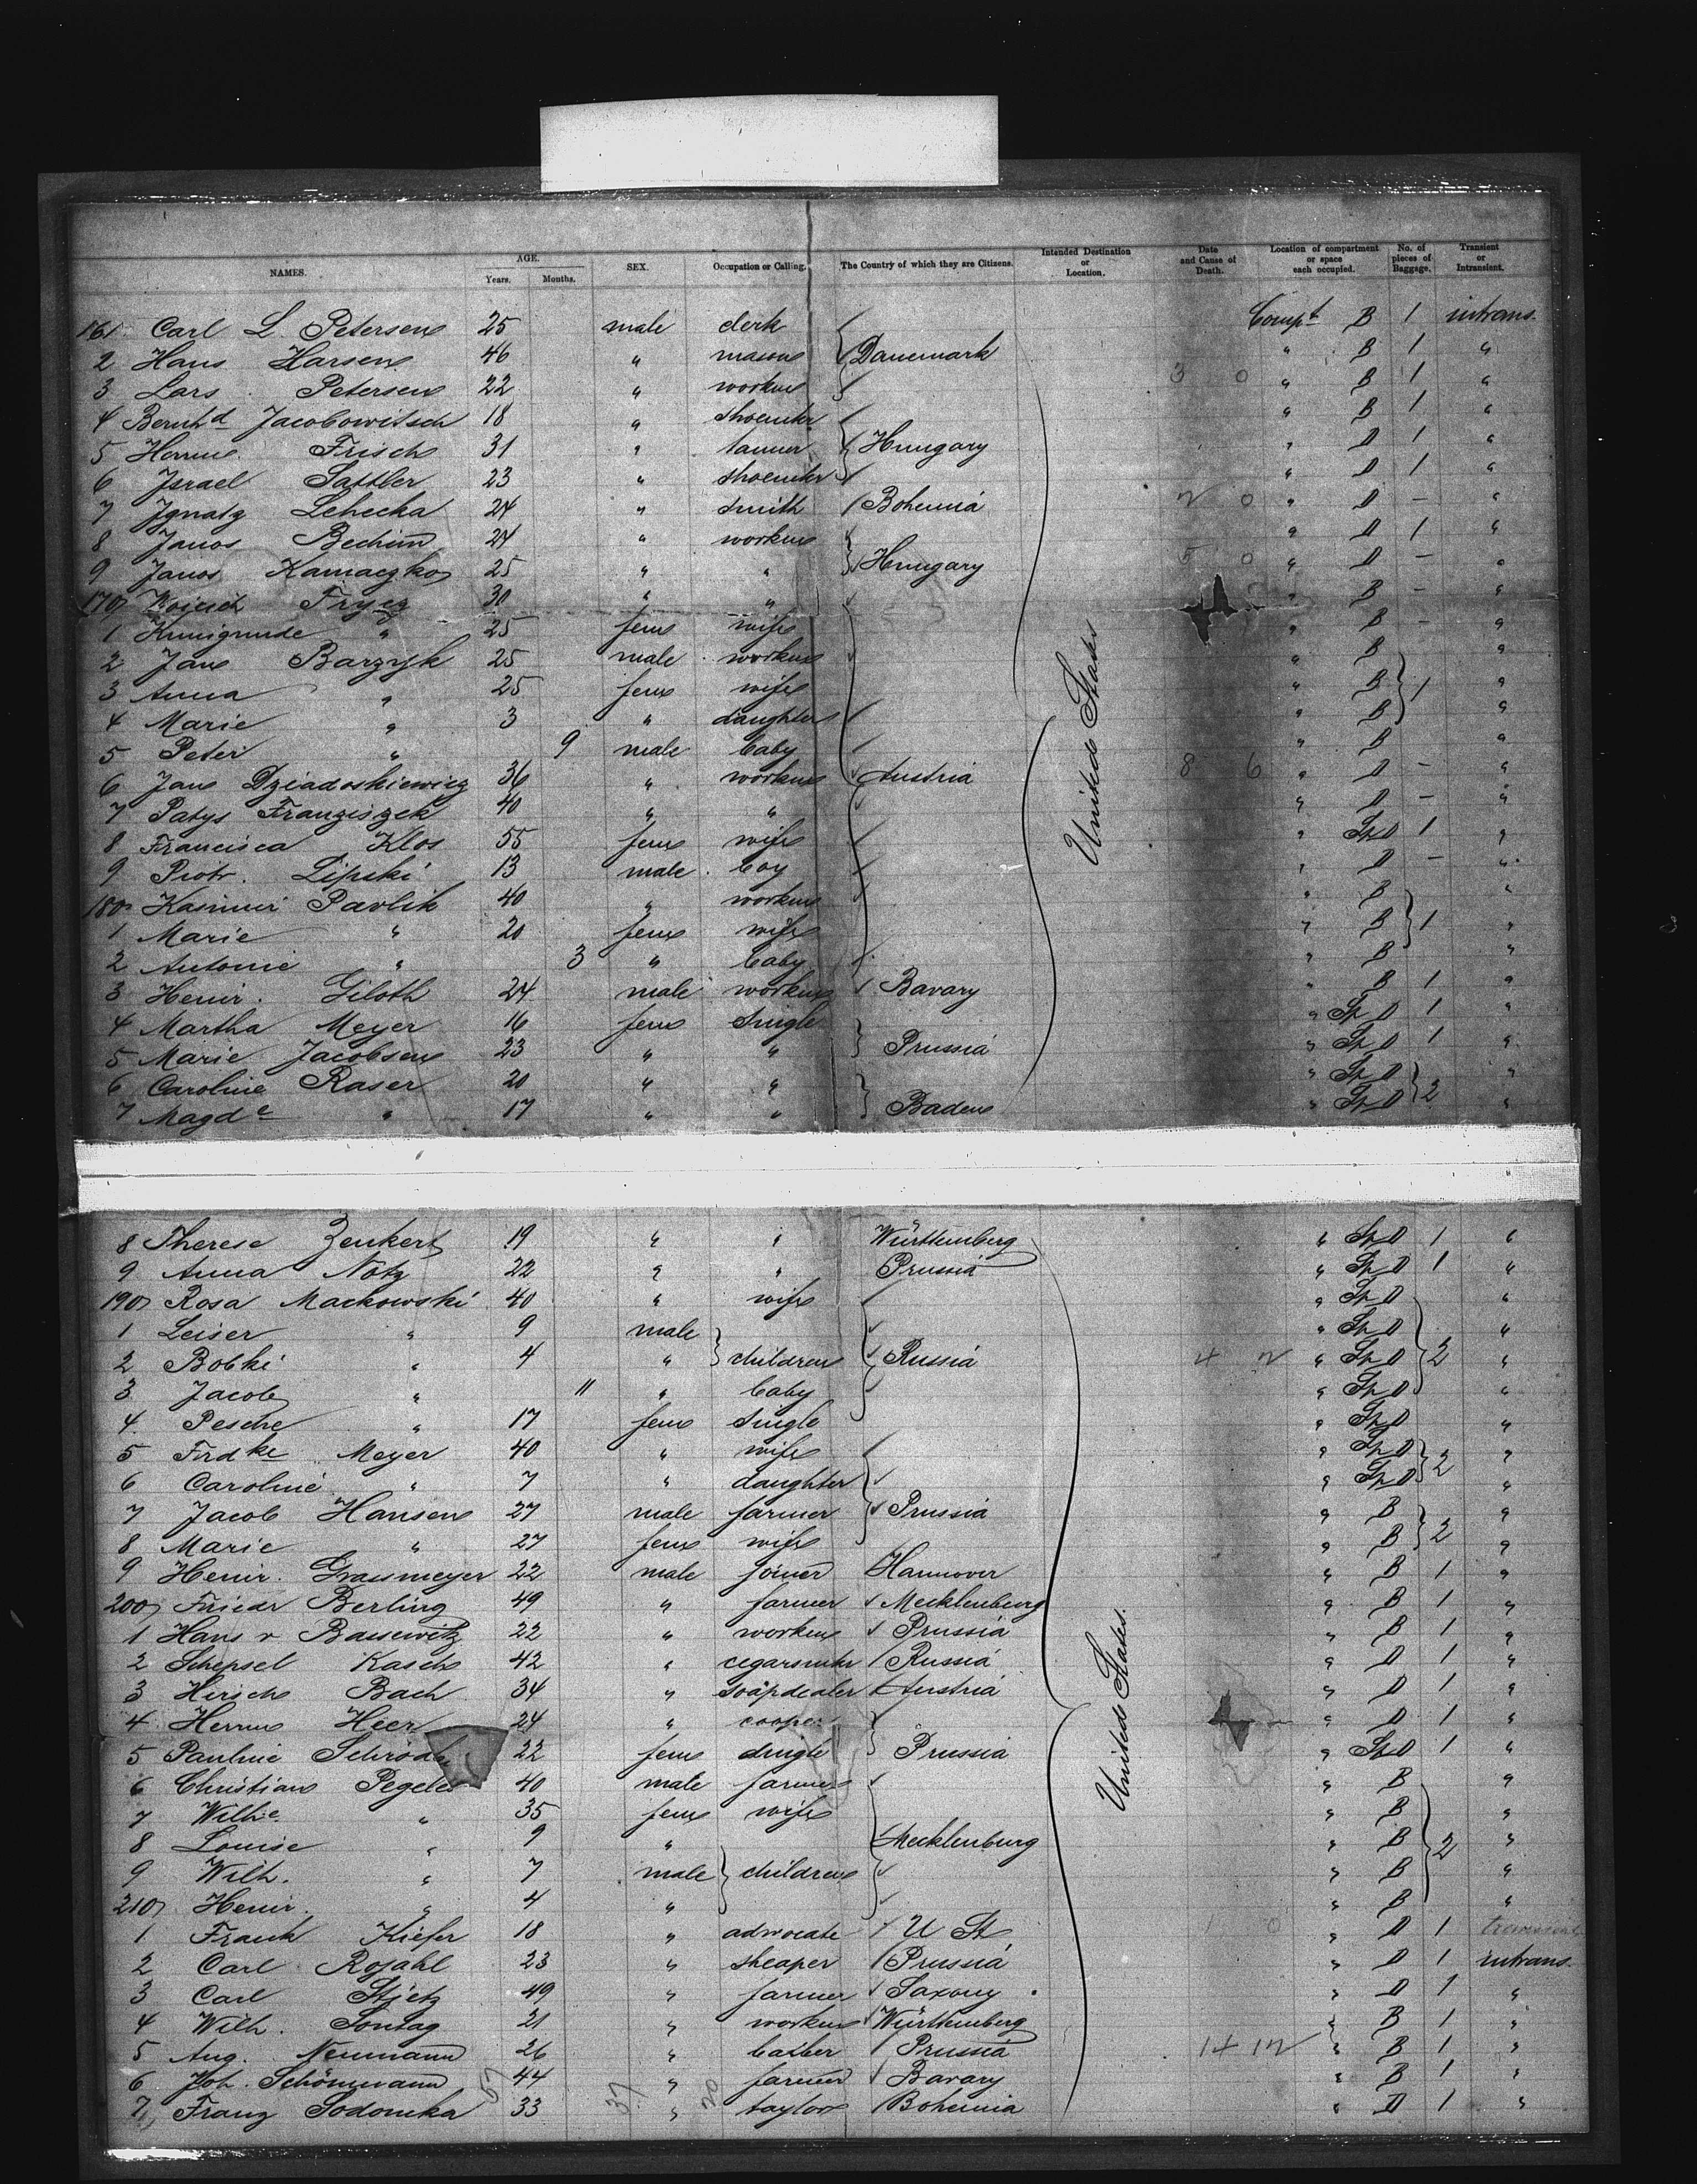 NAMES. AGE. Years. Months. SEX. Occupation or Calling. The Country of which they are Citizens. Intended Destination or Location. Date and Cause of Death. Location of compartment or space each occupied. No. of pieces of Baggage. Transient or Intransient.
161 Carl L. Petersen 25 male clerk Compt B 1 intrans.
2 Hans Harsen 46 " mason Danemark " B 1 "
3 Lars Petersen 22 " workm 3 0 " B 1 "
4 Bernhd Jacobowitsch 18 " shoemkr " B 1 "
5 Herm. Frisch 31 " tanner Hungary " D 1 "
6 Israel Sattler 23 " shoemkr " D 1 "
7 Ignatz Lehecka 24 " smith Bohemia 2 0 " D - "
8 Janos Bechim 24 " workm " D 1 "
9 Janos Kamaczko 25 " " Hungary 5 0 " D - "
170 Wojcich Frycz 30 " " " B - "
1 Kunigunde " 25 fem wife " B - "
2 Jan Barzyk 25 male workm " B "
3 Anna " 25 fem wife " B 1 "
4 Marie " 3 " daughter " B "
5 Peter " 9 male baby " B "
6 Jan Dziadoskiewicz 36 " workm Austria 8 6 " D - "
7 Patys Franziszek 40 " " " D - "
8 Francisca Klos 55 fem wife " Sp D 1 "
9 Piotr. Lipski 13 male boy " D - "
180 Kasimir Pavlik 40 " workm " B "
1 Marie " 20 fem wife " B 1 "
2 Antonie " 3 " baby " B "
3 Heinr. Giloth 24 male workm Bavary " B 1 "
4 Martha Meyer 16 fem single " Sp D 1 "
5 Marie Jacobsen 23 " " Prussia " Sp D 1 "
6 Caroline Raser 20 " " " Sp D "
7 Magde " 17 " " Baden " Sp D 2 "
8 Therese Zenkert 19 " " Württemberg " Sp D 1 "
9 Anna Notz 22 " " Prussia " Sp D 1 "
190 Rosa Mackowski 40 " wife " Sp D "
1 Leiser " 9 male " Sp D "
2 Bobki " 4 " children Russia 4 2 " Sp D 2 "
3 Jacob " 11 " baby " Sp D "
4 Pesche " 17 fem single " Sp D "
5 Frdke Meyer 40 " wife " Sp D "
6 Caroline " 7 " daughter " Sp D 2 "
7 Jacob Hansen 27 male farmer Prussia " B "
8 Marie " 27 fem wife " B 2 "
9 Heinr. Grassmeyer 22 male joiner Hannover " B 1 "
200 Friedr Berling 49 " farmer Mecklenburg " B 1 "
1 Hans v Bassewitz 22 " workm Prussia " B 1 "
2 Schepsel Kasch 42 " cegarsmkr Russia " D 1 "
3 Hirsch Bach 34 " soapdealer Austria " D 1 "
4 Herm Heer 24 " cooper " D 1 "
5 Pauline 22 fem single Prussia " Sp D 1 "
6 Christian Pegeler 40 male farmer " B "
7 Wilhe. " 35 fem wife " B "
8 Louise " 9 " Mecklenburg " B 2 "
9 Wilh. " 7 male children " B "
210 Heinr. " 4 " " B "
1 Frank Kiefer 18 " advocate U St. 1 0 " D 1 transient
2 Carl Rojahl 23 " sheaper Prussia " D 1 intrans.
3 Carl Stietz 49 " farmer Saxony " D 1 "
4 Wilh. Sontag 21 " workm Württemberg " B 1 "
5 Aug. Neumann 26 " Prussia 14 12 " B 1 "
6 Joh. Schönmann 44 " farmer Bavary " B 1 "
7 Franz Sodomka 33 " taylor Bohemia " D 1 "
United States
United States.
57 37 20